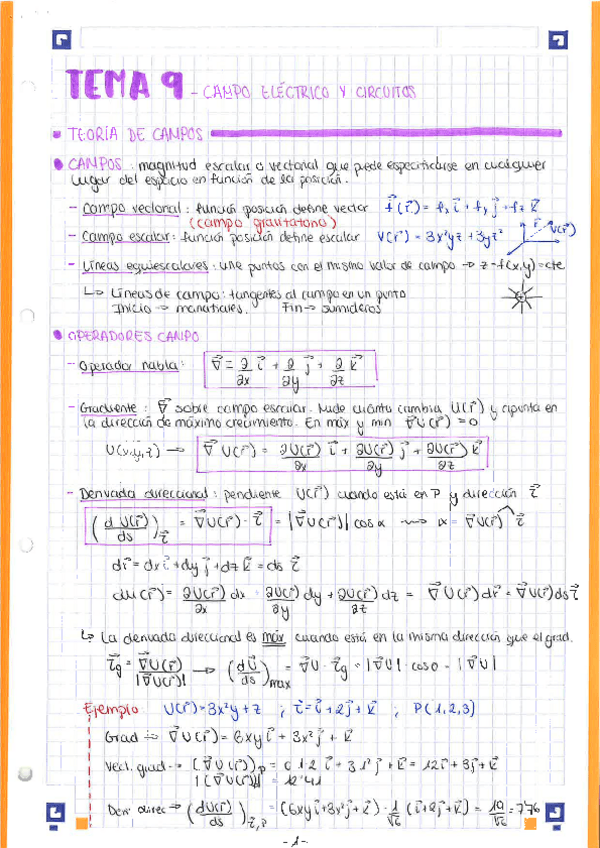 TEMA 9 - CAMPO ELÉCTRICO Y CIRCUITOS
TEORÍA DE CAMPOS
CAMPOS: magnitud escalar o vectorial que puede especificarse en cualquier
lugar del espacio en función de la posición.
- Campo vectorial: función posición define vector f⃗(r⃗) = fx i⃗ + fy j⃗ + fz k⃗
(campo gravitatorio)
- Campo escalar: función posición define escalar V(r⃗) = 3x²yz + 3yz²
r⃗ V(r⃗)
- Líneas equiescalares: une puntos con el mismo valor de campo → z = f(x,y) = cte
↳ Líneas de campo: tangentes al campo en un punto
Inicio → manantiales. Fin → sumideros
OPERADORES CAMPO
- Operador nabla: ∇⃗ = ∂/∂x i⃗ + ∂/∂y j⃗ + ∂/∂z k⃗
- Gradiente: ∇⃗ sobre campo escalar. Mide cuánto cambia U(r⃗) y apunta en
la dirección de máximo crecimiento. En máx y min ∇⃗U(r⃗) = 0
U(x,y,z) → ∇⃗ U(r⃗) = ∂U(r⃗)/∂x i⃗ + ∂U(r⃗)/∂y j⃗ + ∂U(r⃗)/∂z k⃗
- Derivada direccional: pendiente U(r⃗) cuando está en P y dirección τ⃗
(d U(r⃗)/ds)τ⃗ = ∇⃗U(r⃗) · τ⃗ = |∇⃗U(r⃗)| cos α ⟿ α = ∇⃗U(r⃗) ^ τ⃗
dr⃗ = dx i⃗ + dy j⃗ + dz k⃗ = ds τ⃗
dU(r⃗) = ∂U(r⃗)/∂x dx + ∂U(r⃗)/∂y dy + ∂U(r⃗)/∂z dz = ∇⃗U(r⃗) dr⃗ = ∇⃗U(r⃗) ds τ⃗
↳ La derivada direccional es máx cuando está en la misma dirección que el grad.
τ⃗g = ∇⃗U(r⃗)/|∇⃗U(r⃗)| → (dU/ds)max = ∇⃗U · τ⃗g = |∇⃗U| · cos 0 = |∇⃗U|
Ejemplo U(r⃗) = 3x²y + z ; τ⃗ = i⃗ + 2j⃗ + k⃗ ; P(1,2,3)
Grad → ∇⃗U(r⃗) = 6xy i⃗ + 3x² j⃗ + k⃗
Vect. grad → (∇⃗U(r⃗))P = 6·1·2 i⃗ + 3·1² j⃗ + k⃗ = 12i⃗ + 3j⃗ + k⃗
|(∇⃗U(r⃗))| = 12'41
Deriv direc → (dU(r⃗)/ds)τ⃗,P = (6xy i⃗ + 3x² j⃗ + k⃗) · 1/√6 (i⃗ + 2j⃗ + k⃗) = 19/√6 = 7'76
- 1 -